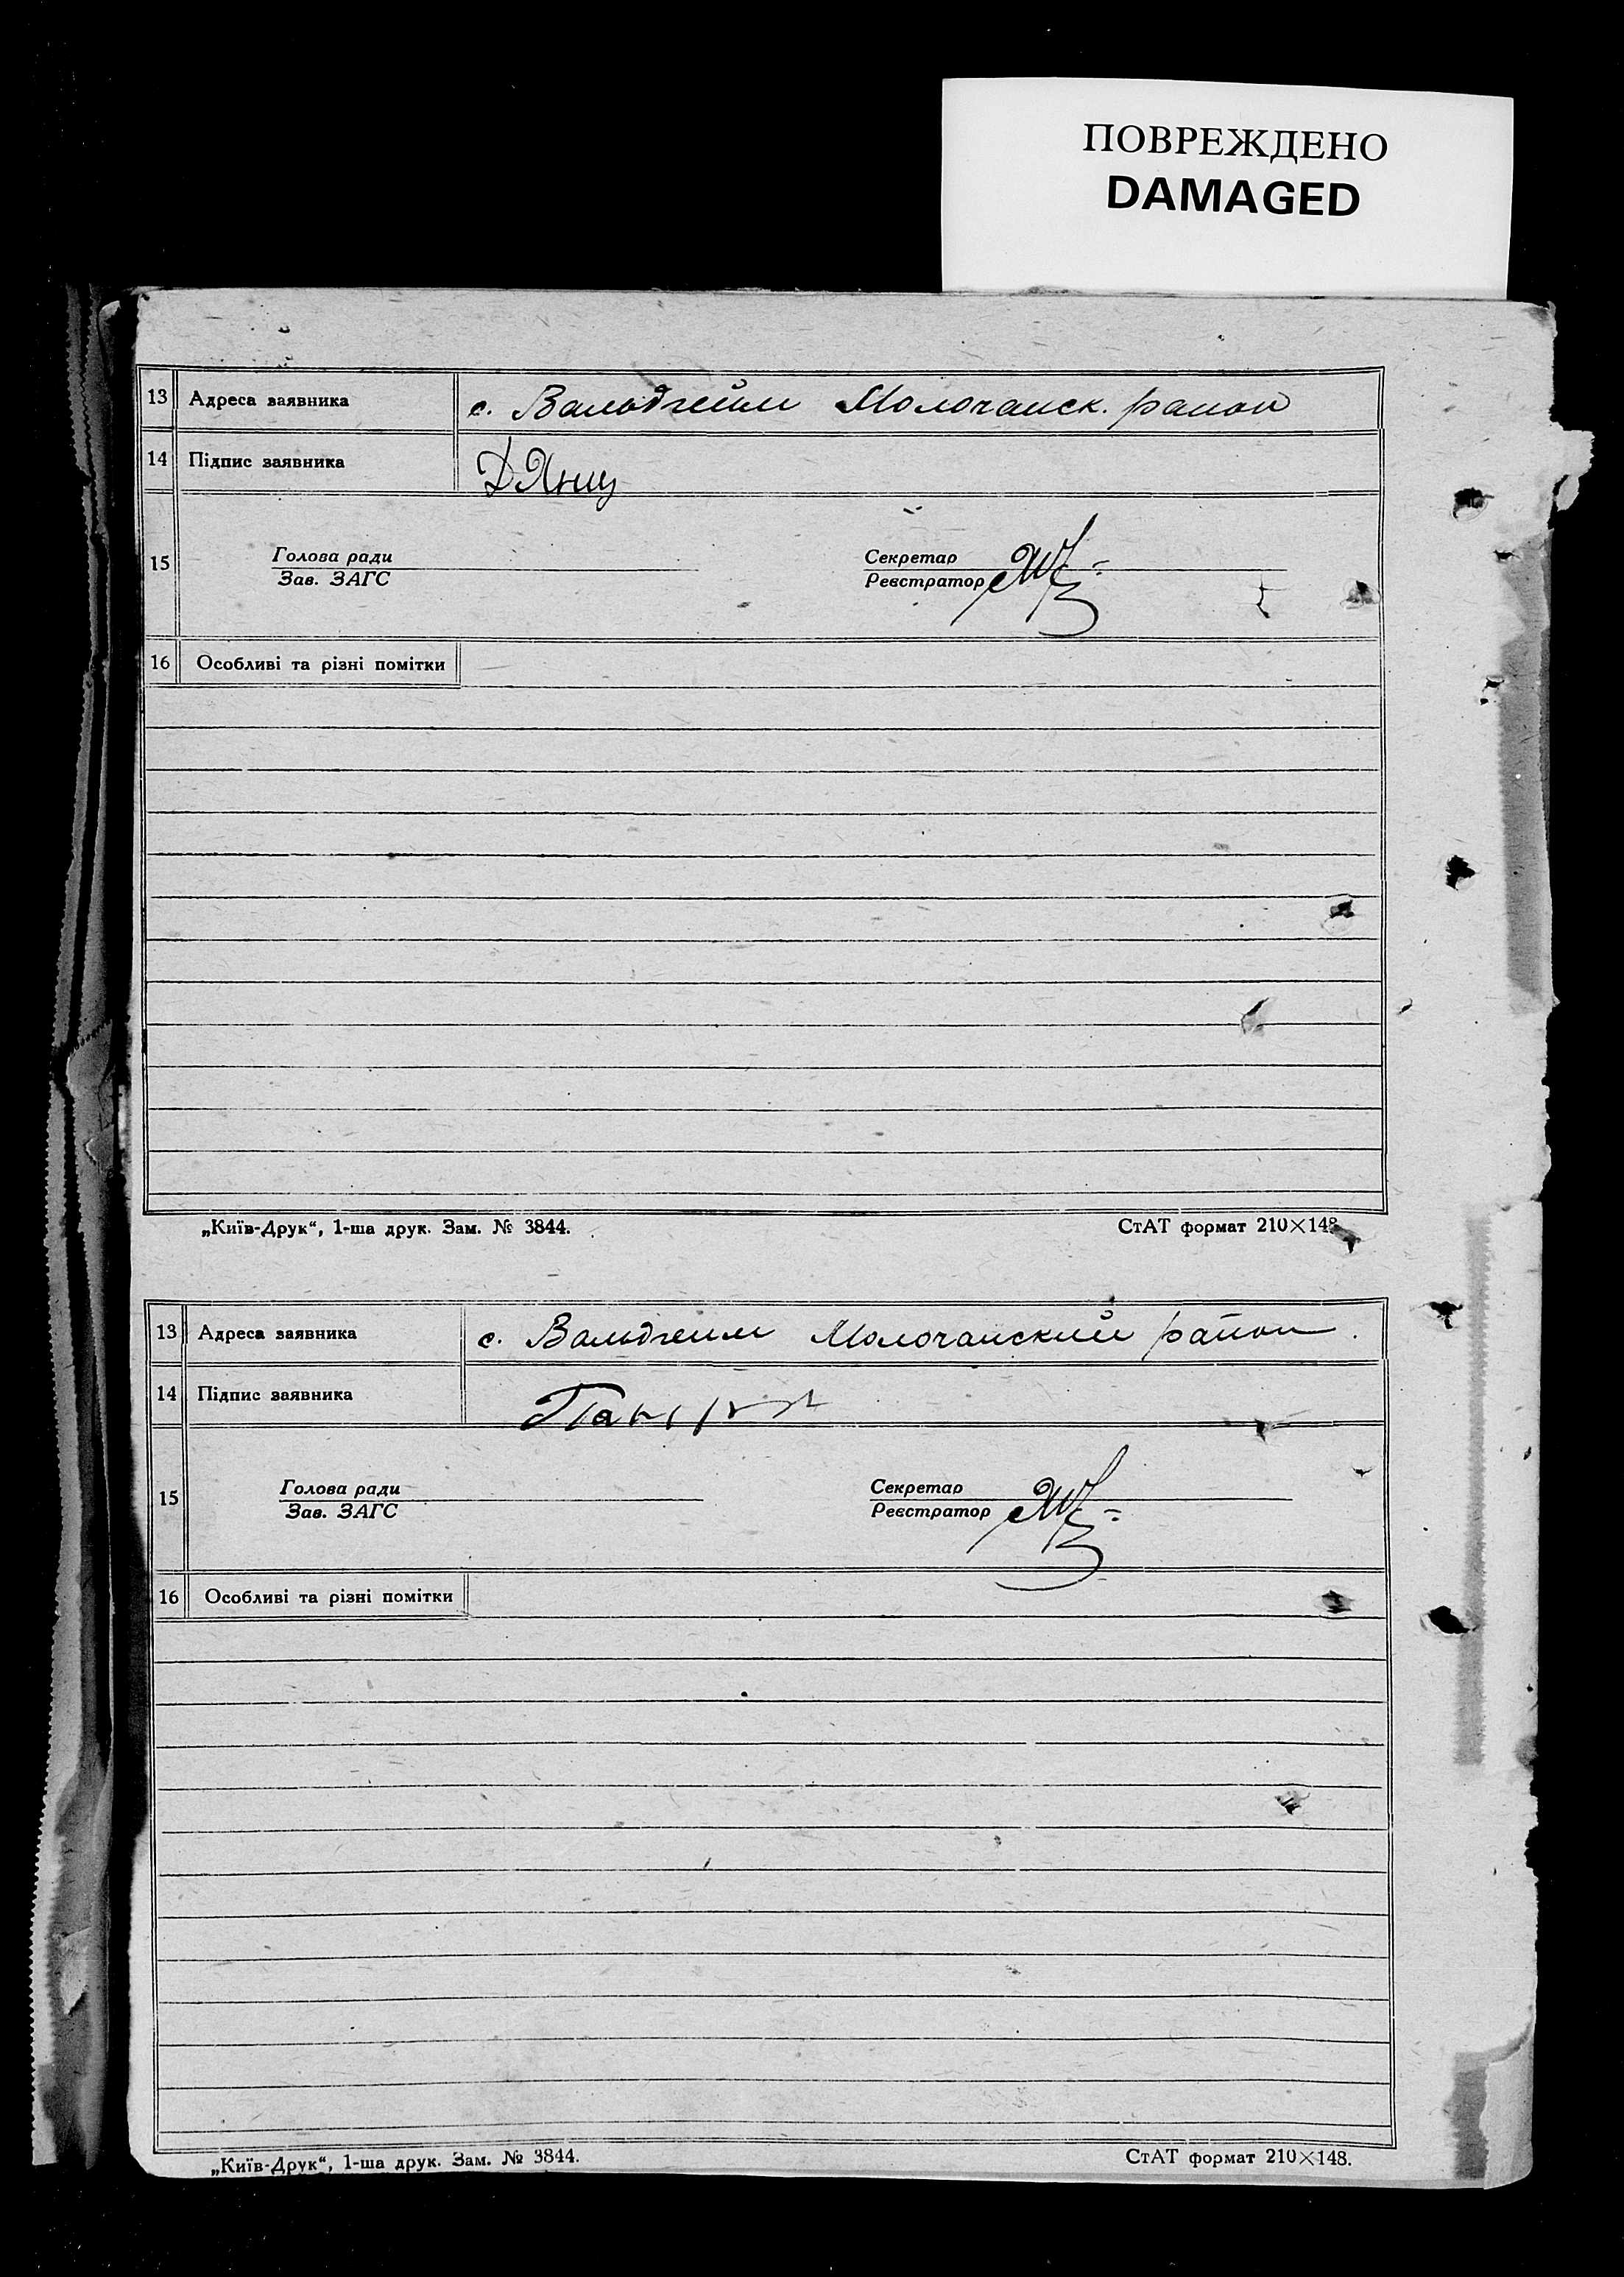 ПОВРЕЖДЕНО
DAMAGED
13 Адреса заявника с. Вальдгейм Молочанск. район
14 Підпис заявника ДЯнц
15 Голова ради Секретар
Зав. ЗАГС Реєстратор
16 Особливі та різні помітки
„Київ-Друк“, 1-ша друк. Зам. № 3844. СтАТ формат 210×148
13 Адреса заявника с. Вальдгейм Молочанский район.
14 Підпис заявника
15 Голова ради Секретар
Зав. ЗАГС Реєстратор
16 Особливі та різні помітки
„Київ-Друк“, 1-ша друк. Зам. № 3844. СтАТ формат 210×148.